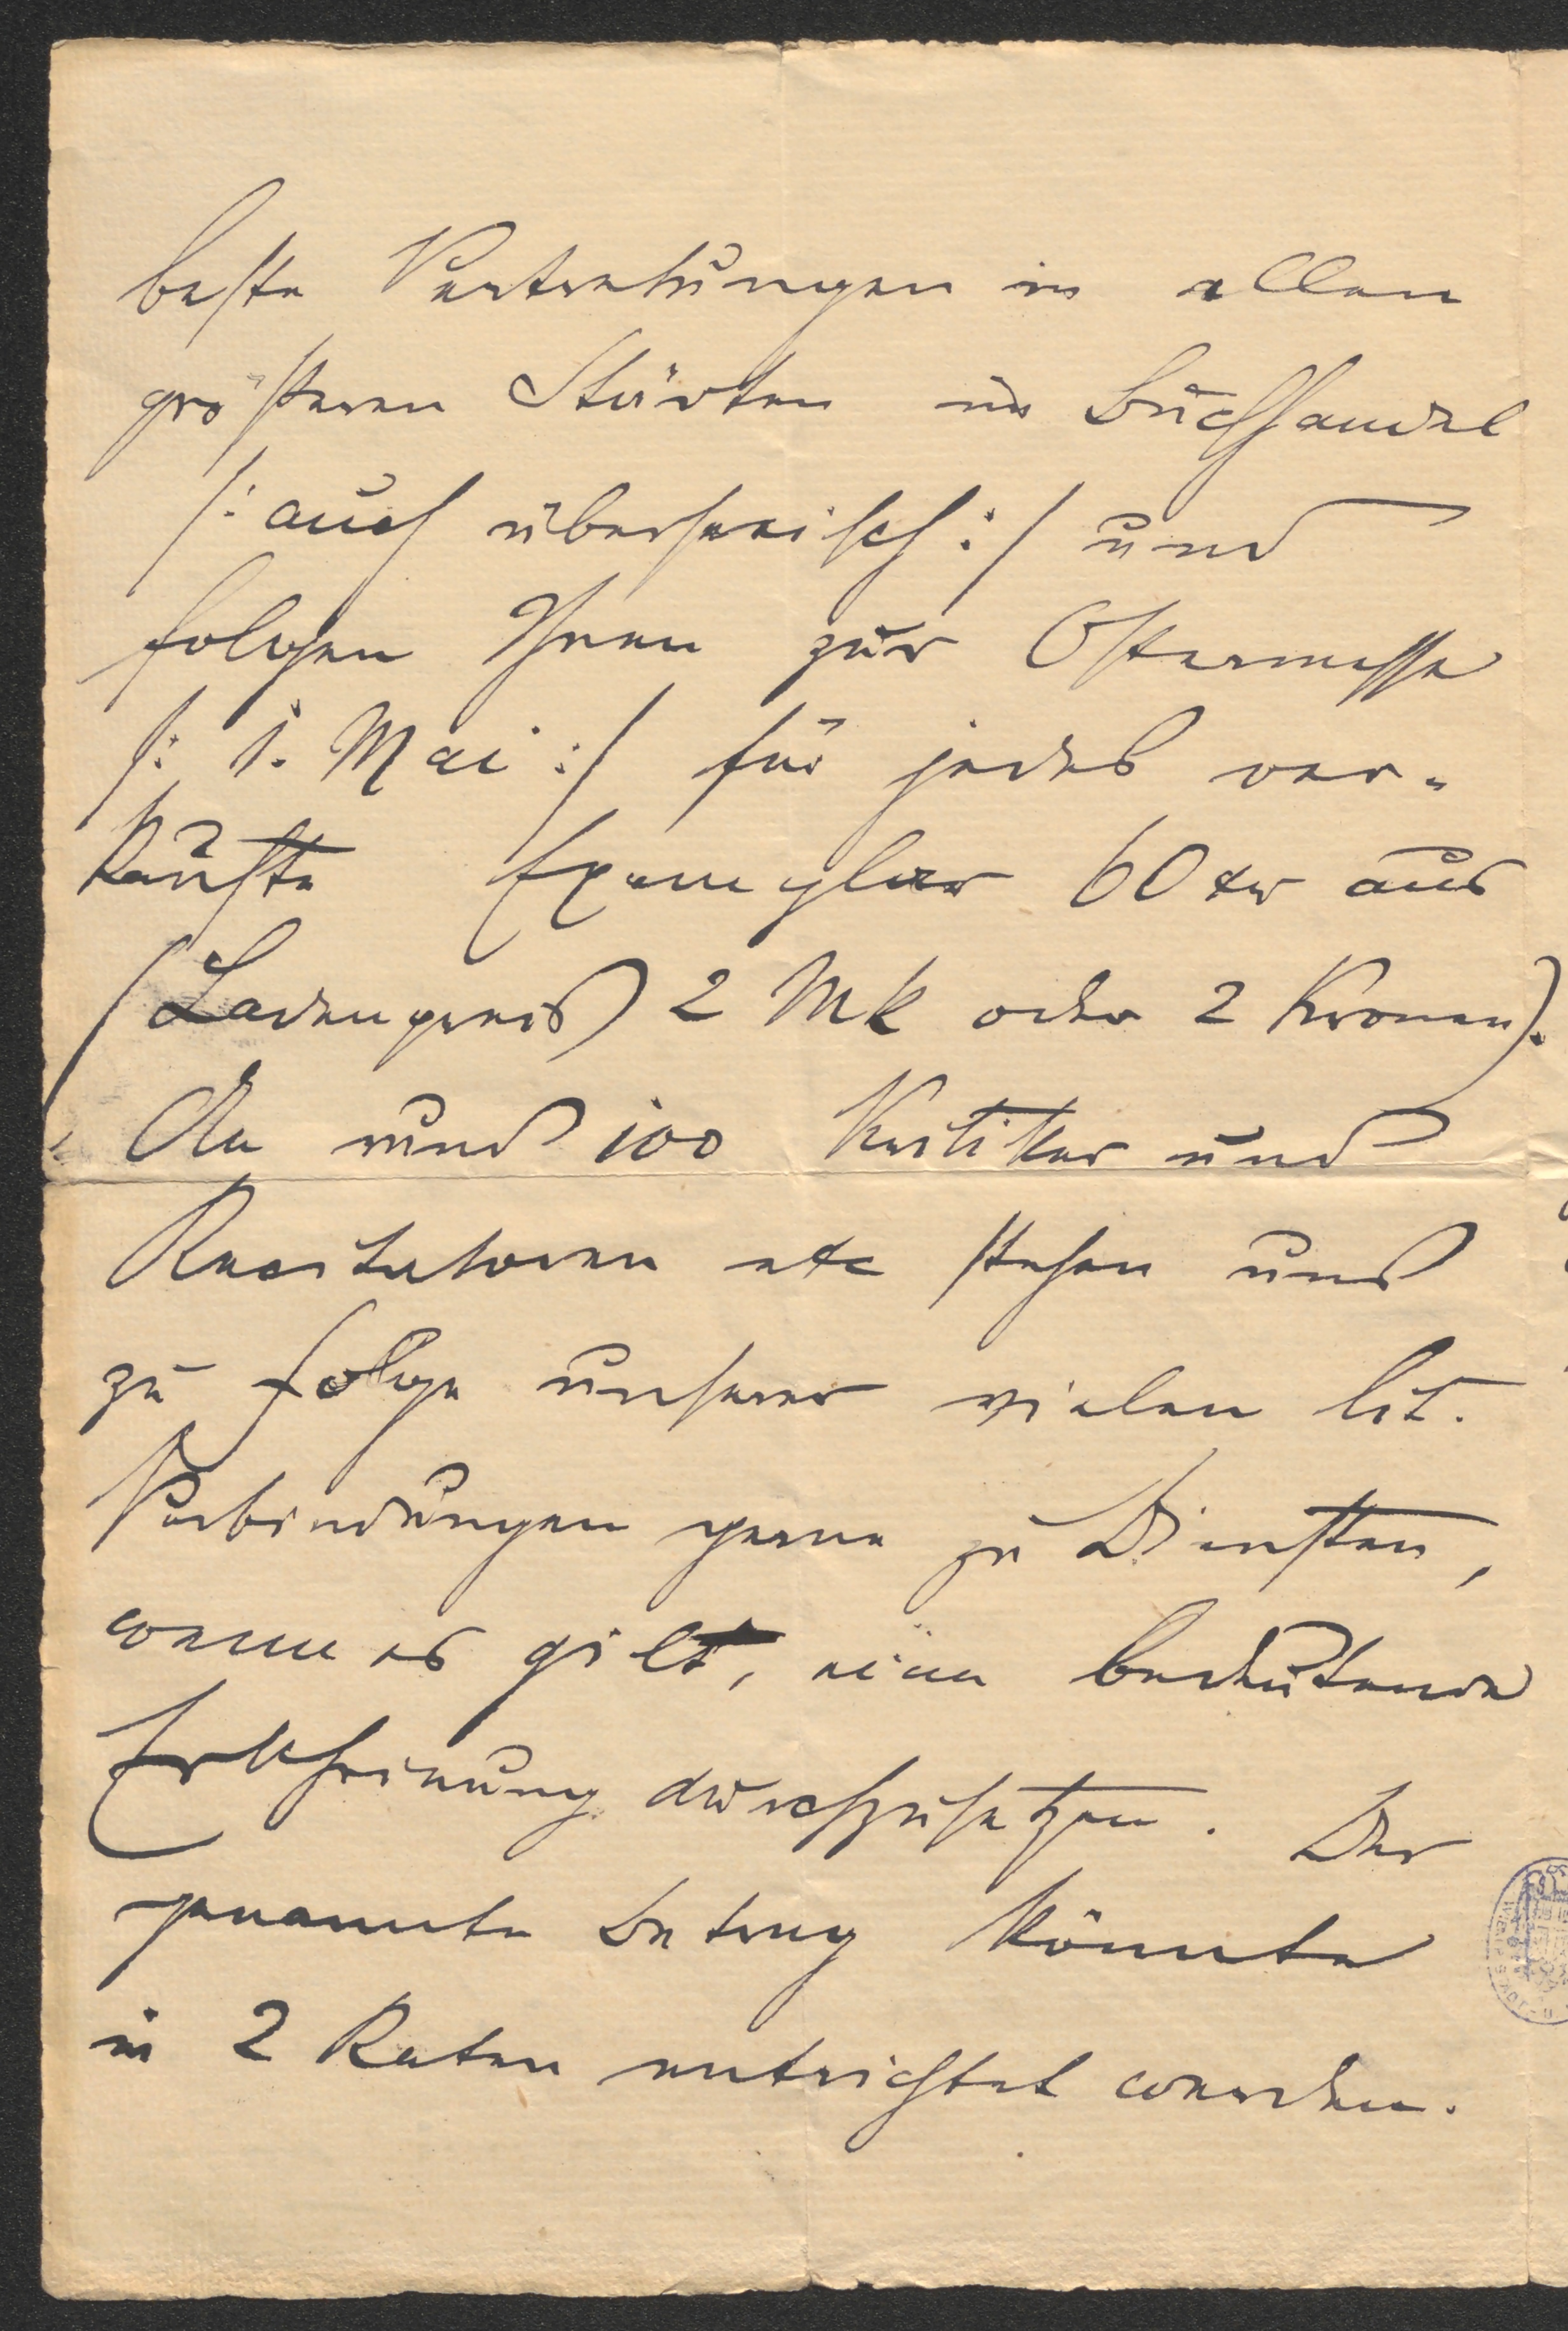 beste Vertretungen in allen
größeren Städten im Buchhandel
/: auch überseeisch :/ und
folgen Ihnen zur Ostermesse
/: 1. Mai :/ für jedes ver-
kaufte Exemplar 60 kr aus
(Ladenpreis 2 Mk oder 2 Kronen).
An rund 100 Kritiker und
Recitatoren etc stehen uns
zu folge unserer vielen lit.
Verbindungen gerne zu Diensten,
wenn es gilt, eine bedeutende
Erscheinung durchzusetzen. Der
genannte Betrag könnte
in 2 Raten entrichtet werden.